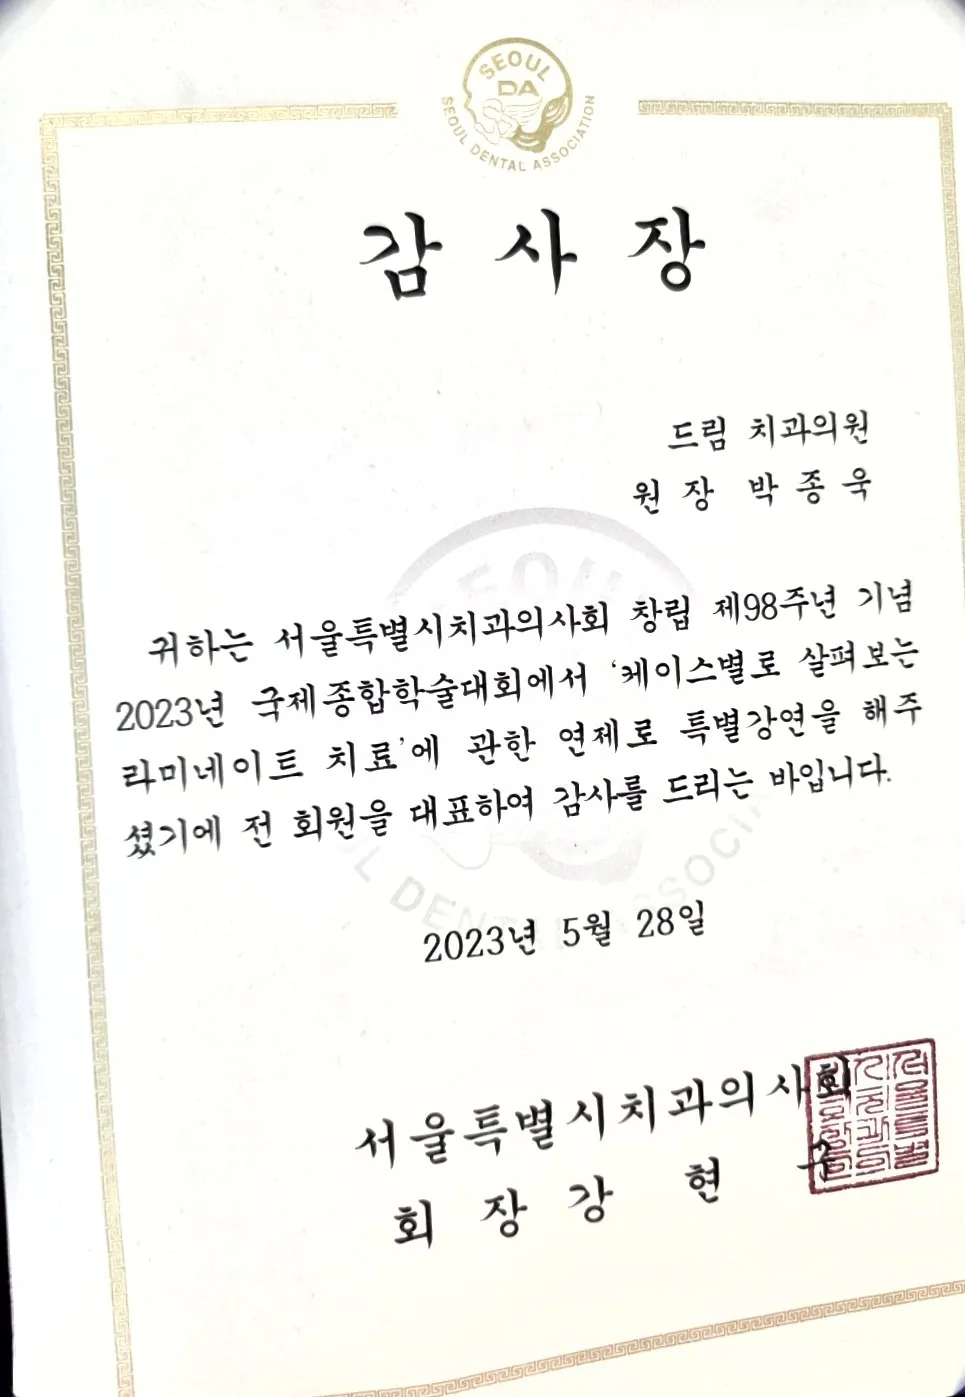 SEOUL
DA
SEOUL DENTAL ASSOCIATION
감 사 장
드림 치과의원
원 장 박 종 욱
귀하는 서울특별시치과의사회 창립 제98주년 기념
2023년 국제종합학술대회에서 ‘케이스별로 살펴보는
라미네이트 치료’에 관한 연제로 특별강연을 해주
셨기에 전 회원을 대표하여 감사를 드리는 바입니다.
2023년 5월 28일
서울특별시치과의사회
회 장 강 현